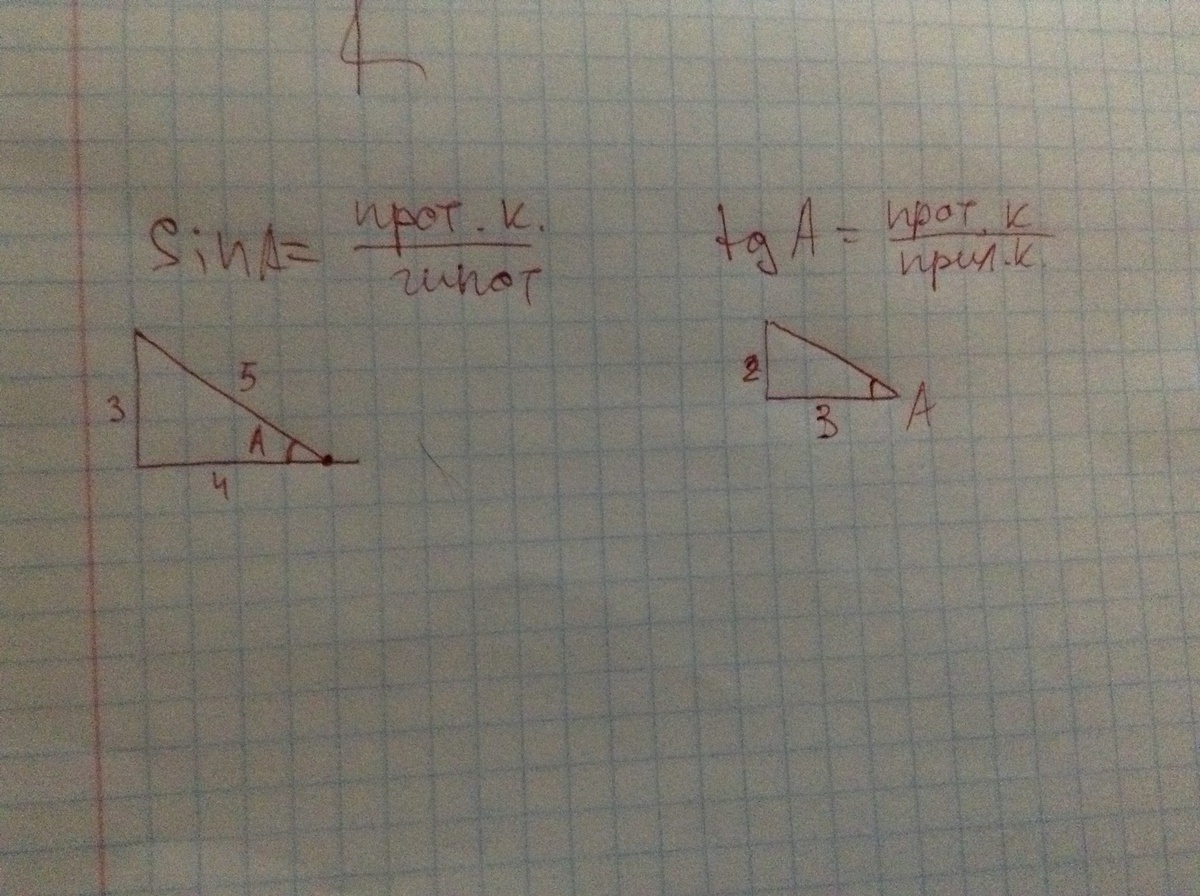 Sin A = прот. к. / гипот
tg A = прот. к / прил. к.
3
5
A
4
2
3
A